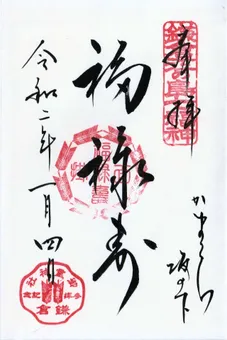 奉拝
かまくら
坂の下
福禄寿
令和二年一月四日
福禄寿
鎌倉